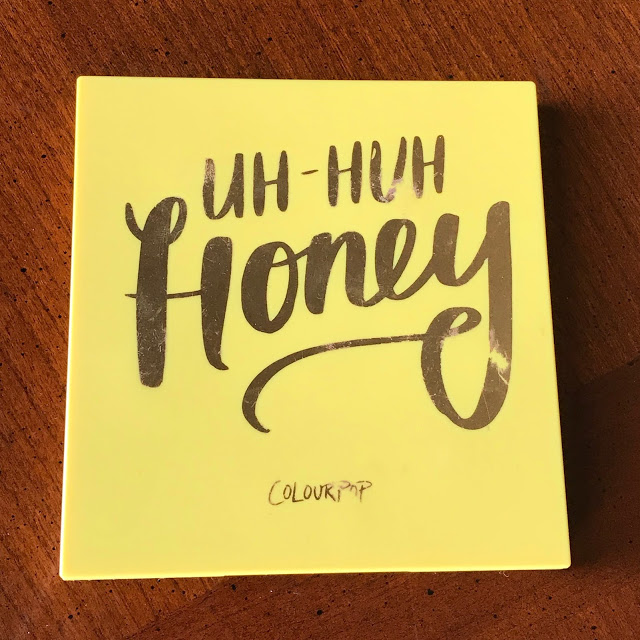 UH-HUH
Honey
COLOURPOP